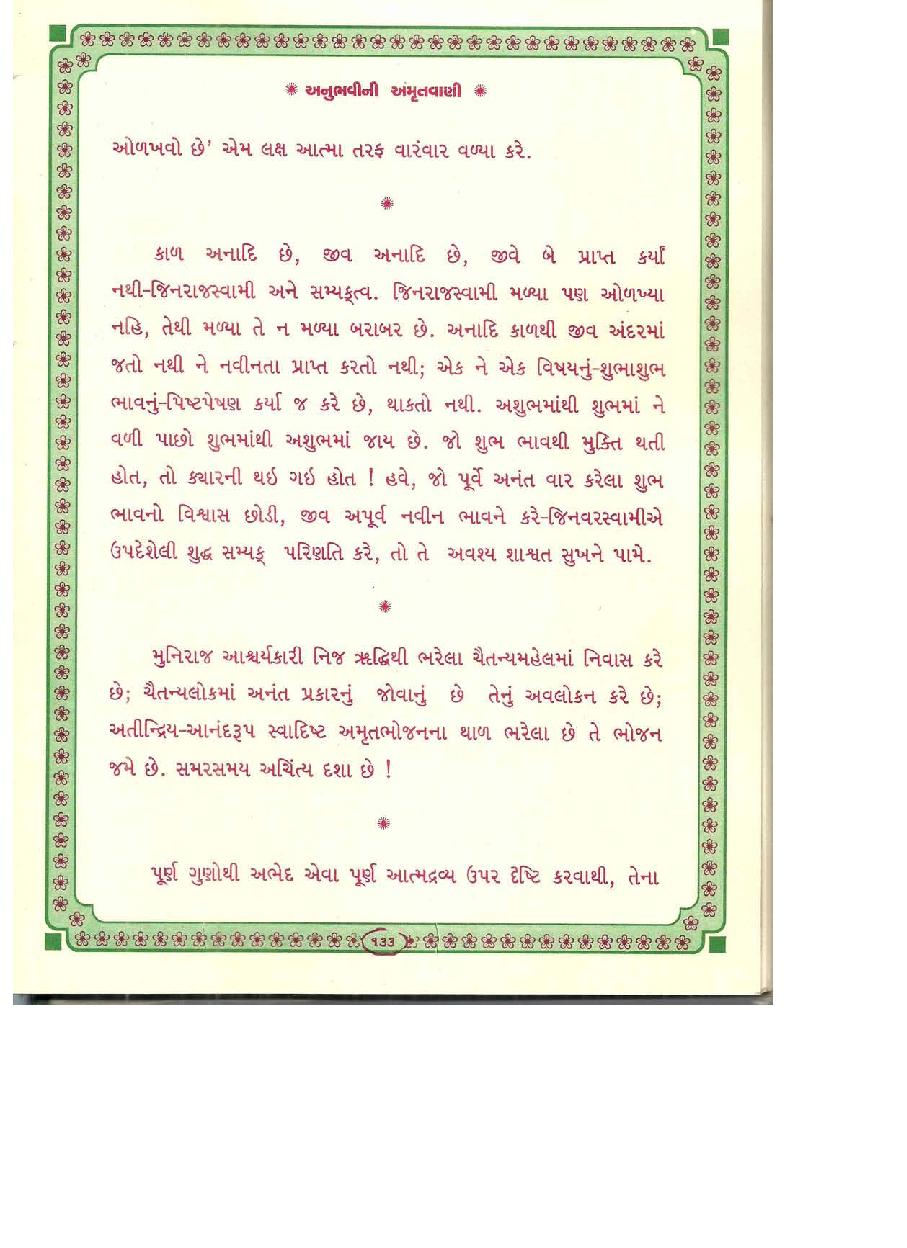 ✺ અનુભવીની અમૃતવાણી ✺
ઓળખવો છે' એમ લક્ષ આત્મા તરફ વારંવાર વળ્યા કરે.
✺
કાળ અનાદિ છે, જીવ અનાદિ છે, જીવે બે પ્રાપ્ત કર્યાં
નથી–જિનરાજસ્વામી અને સમ્યક્ત્વ. જિનરાજસ્વામી મળ્યા પણ ઓળખ્યા
નહિ, તેથી મળ્યા તે ન મળ્યા બરાબર છે. અનાદિ કાળથી જીવ અંદરમાં
જતો નથી ને નવીનતા પ્રાપ્ત કરતો નથી; એક ને એક વિષયનું–શુભાશુભ
ભાવનું–પિષ્ટપેષણ કર્યા જ કરે છે, થાકતો નથી. અશુભમાંથી શુભમાં ને
વળી પાછો શુભમાંથી અશુભમાં જાય છે. જો શુભ ભાવથી મુક્તિ થતી
હોત, તો ક્યારની થઇ ગઇ હોત ! હવે, જો પૂર્વે અનંત વાર કરેલા શુભ
ભાવનો વિશ્વાસ છોડી, જીવ અપૂર્વ નવીન ભાવને કરે–જિનવરસ્વામીએ
ઉપદેશેલી શુદ્ધ સમ્યક્ પરિણતિ કરે, તો તે અવશ્ય શાશ્વત સુખને પામે.
✺
મુનિરાજ આશ્ચર્યકારી નિજ ઋદ્ધિથી ભરેલા ચૈતન્યમહેલમાં નિવાસ કરે
છે; ચૈતન્યલોકમાં અનંત પ્રકારનું જોવાનું છે તેનું અવલોકન કરે છે;
અતીન્દ્રિય–આનંદરૂપ સ્વાદિષ્ટ અમૃતભોજનના થાળ ભરેલા છે તે ભોજન
જમે છે. સમરસમય અચિંત્ય દશા છે !
✺
પૂર્ણ ગુણોથી અભેદ એવા પૂર્ણ આત્મદ્રવ્ય ઉપર દૃષ્ટિ કરવાથી, તેના
૧૩૩